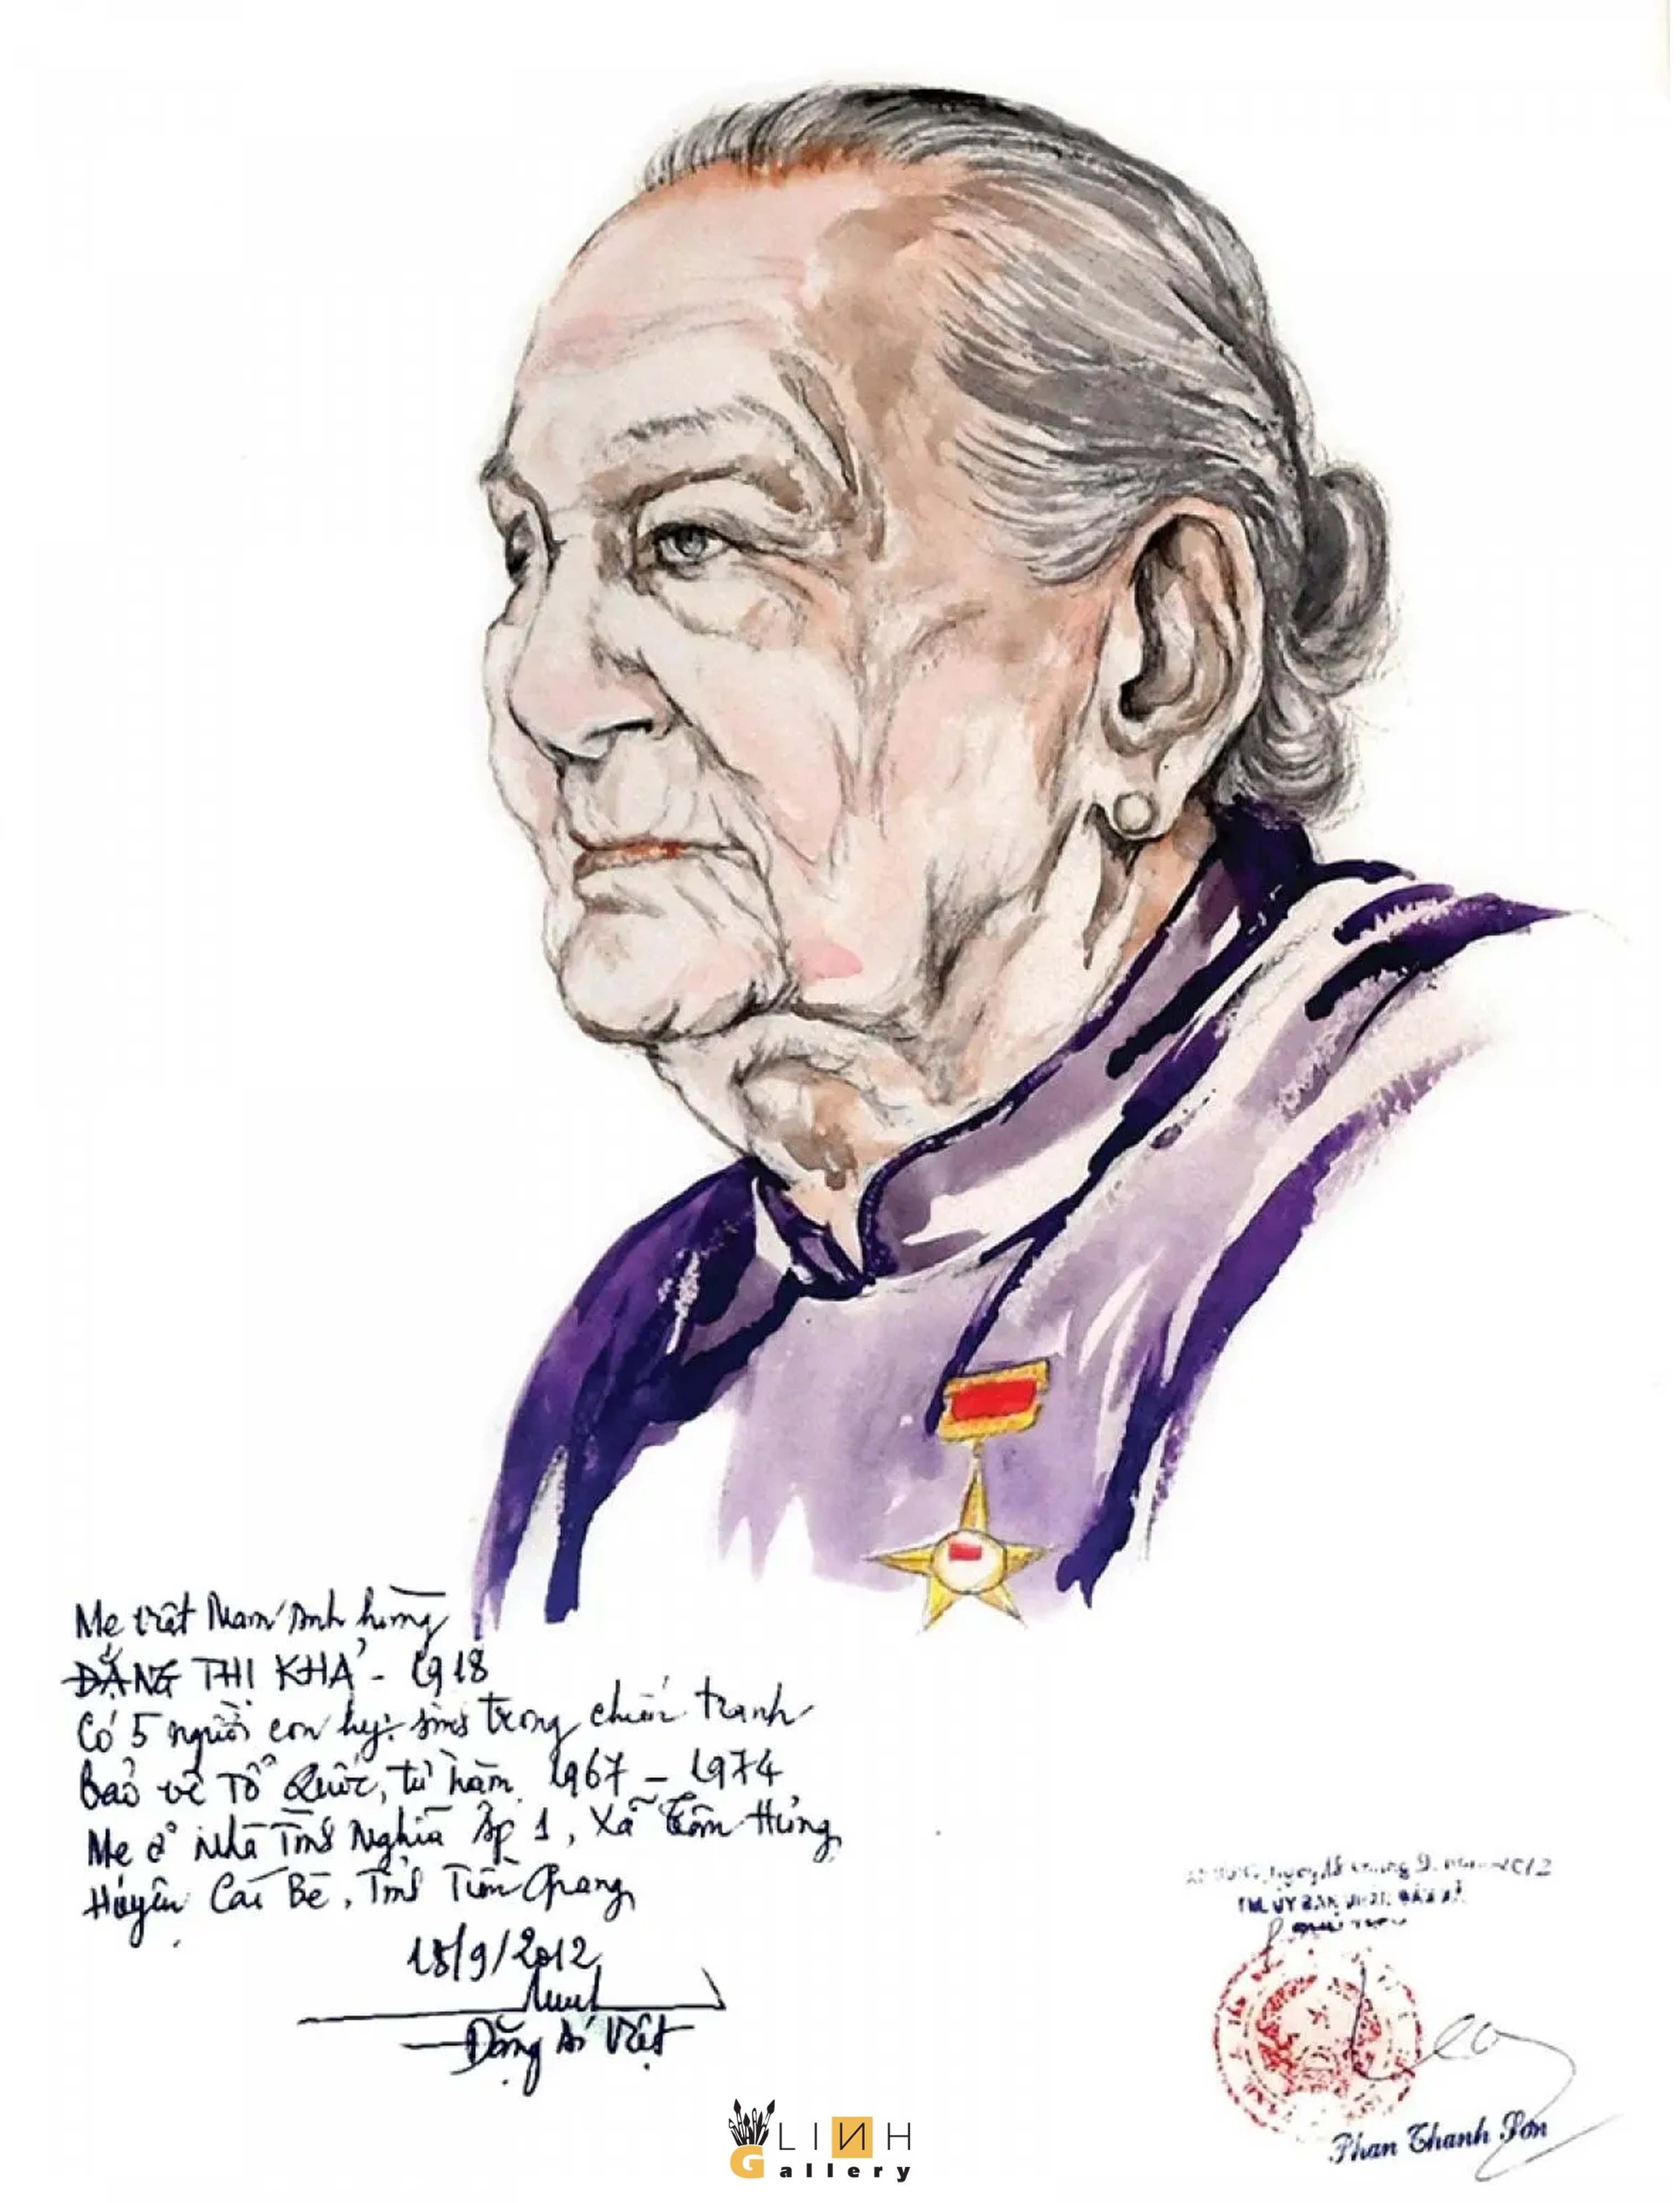 Mẹ Việt Nam Anh hùng
ĐẶNG THỊ KHẢ - 1918
Có 5 người con hy sinh trong chiến tranh
Bảo vệ Tổ Quốc, từ năm 1967 - 1974
Mẹ ở Nhà Tình Nghĩa Ấp 1, Xã Tân Hưng,
Huyện Cái Bè, Tỉnh Tiền Giang
18/9/2012
Đặng Ái Việt
TM. ỦY BAN NHÂN DÂN XÃ
Phan Thanh Sơn
LINH
Gallery